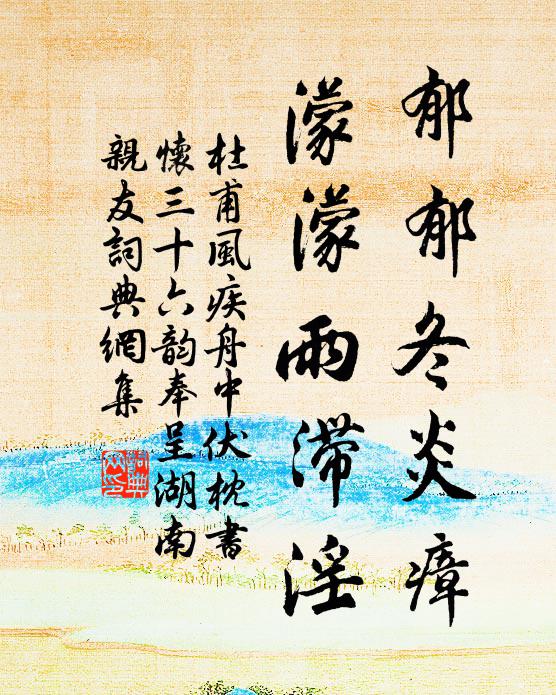 郁郁冬炎瘴
濛濛雨滯淫
杜甫風疾舟中伏枕書
懷三十六韵奉呈湖南
親友詞典網集